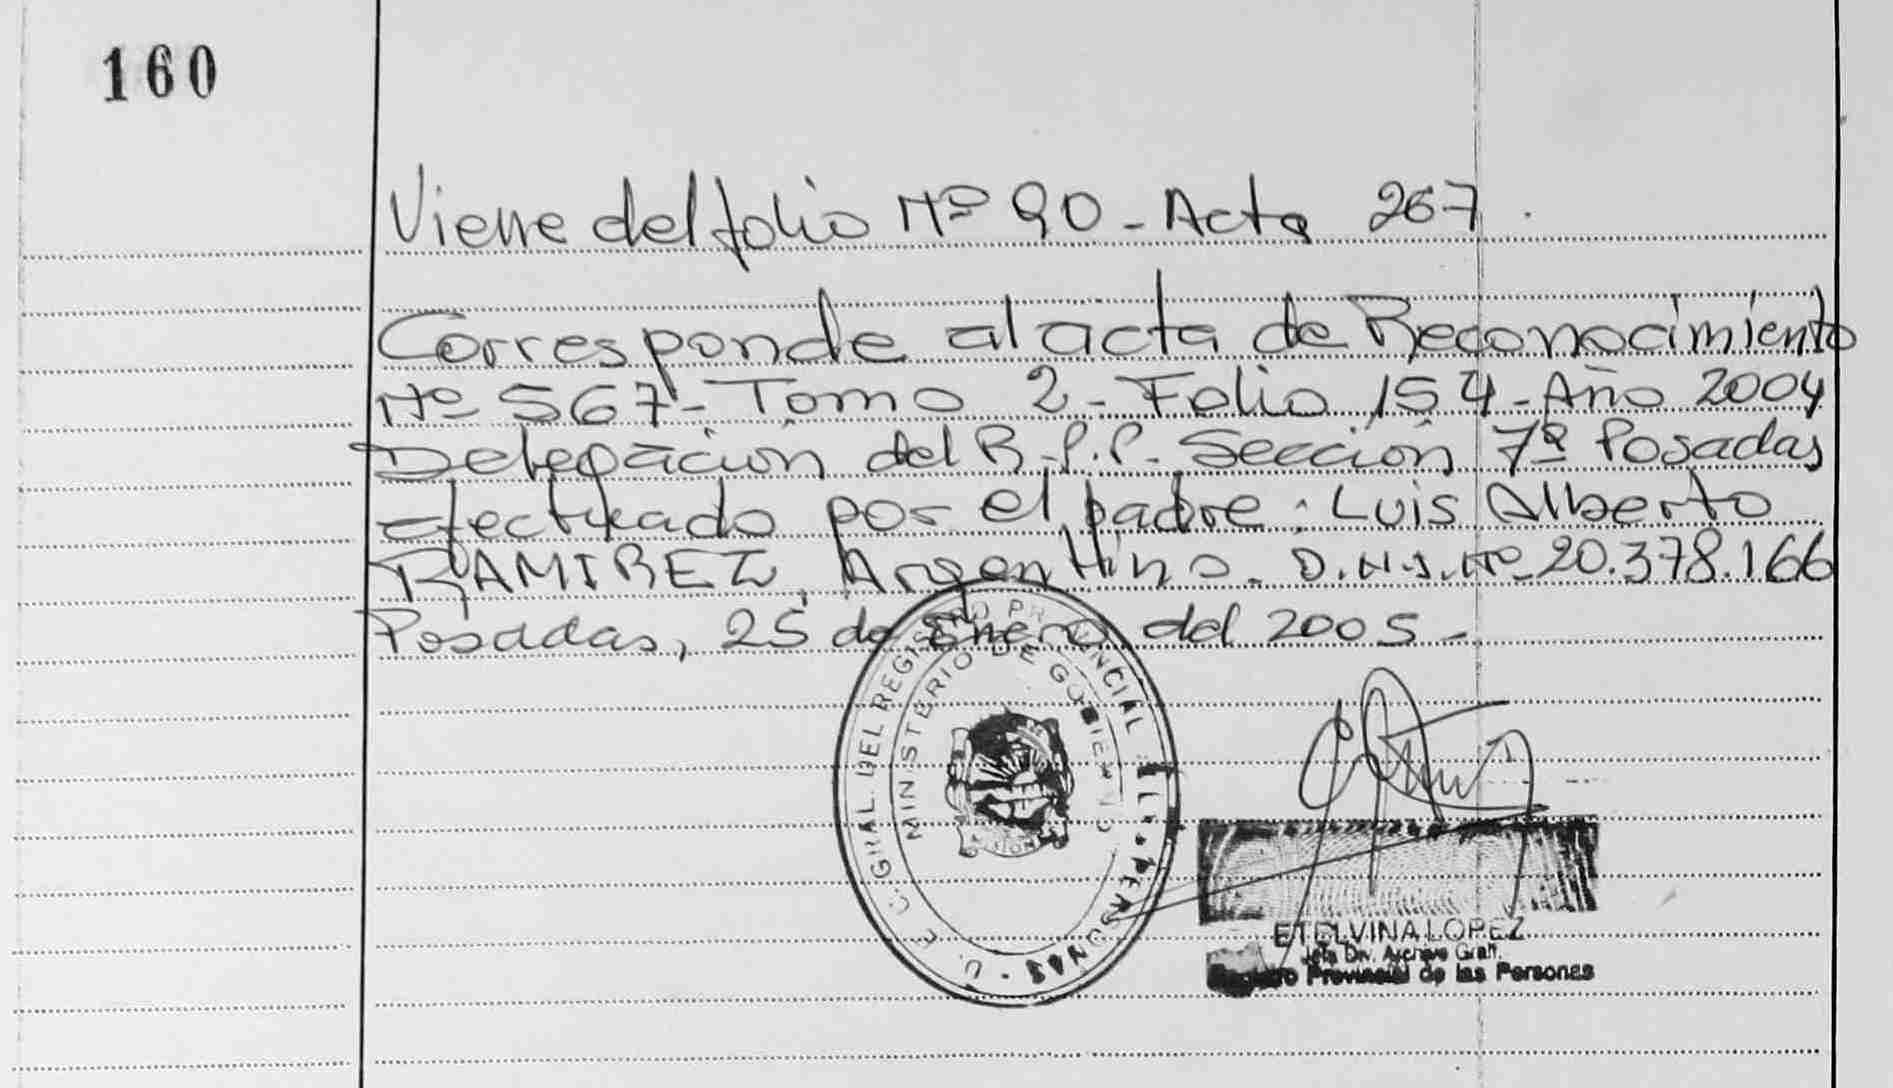 160
Viene del folio Nº 90 - Acta 267.
Corresponde al acta de Reconocimiento
Nº 567 - Tomo 2 - Folio 154 - Año 2004
Delegación del R.P.P. Sección 7ª Posadas
efectuado por el padre: Luis Alberto
RAMIREZ, Argentino. D.N.I. Nº 20.378.166
Posadas, 25 de Enero del 2005 -
GRAL. DEL REGISTRO PROVINCIAL DE LAS PERSONAS
MINISTERIO DE GOBIERNO
ETELVINA LOPEZ
Jefa Div. Archivo Gral.
Registro Provincial de las Personas